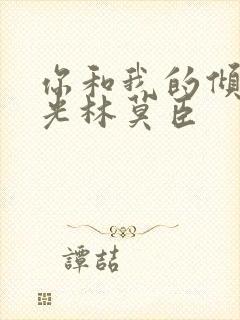 你和我的傾
光林莫臣
譚喆